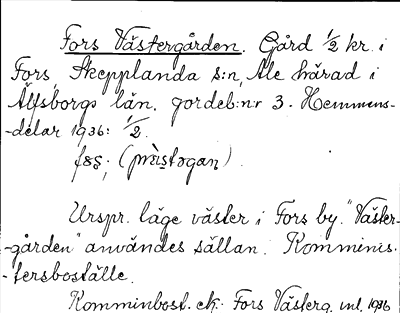 Fors Västergården. Gård 1/2 kr. i
Fors, Skepplanda s:n, Ale härad i
Älfsborgs län. jordeb:nr 3. Hemmans-
-delar 1936: 1/2.
Urspr. läge väster i Fors by. "Väster-
-gården" användes sällan. Komminis-
-tersboställe.
Komminbost. ek: Fors Västerg. inl. 1936